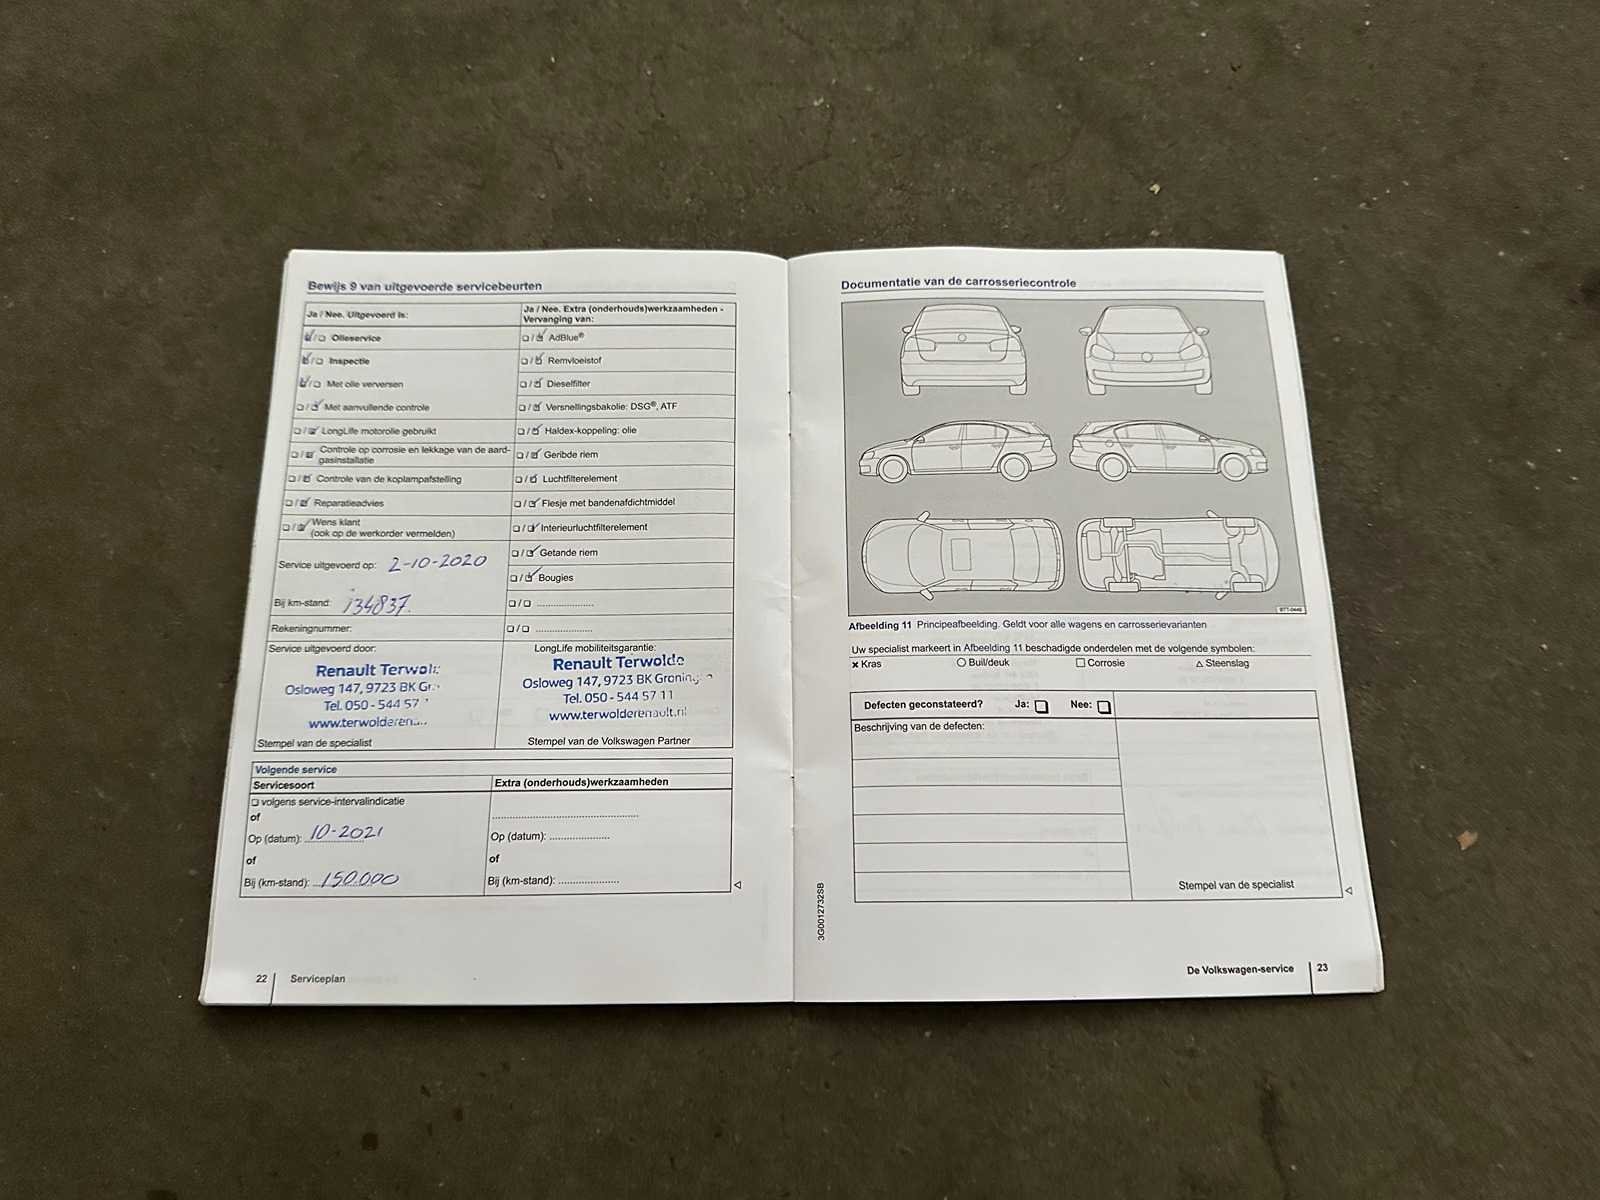 Bewijs 9 van uitgevoerde servicebeurten
Ja / Nee. Uitgevoerd is:
Ja / Nee. Extra (onderhouds)werkzaamheden -
Vervanging van:
Olieservice
AdBlue®
Inspectie
Remvloeistof
Met olie verversen
Dieselfilter
Met aanvullende controle
Versnellingsbakolie: DSG®, ATF
LongLife motorolie gebruikt
Haldex-koppeling: olie
Controle op corrosie en lekkage van de aard-
gasinstallatie
Geribde riem
Controle van de koplampafstelling
Luchtfilterelement
Reparatieadvies
Flesje met bandenafdichtmiddel
Wens klant
(ook op de werkorder vermelden)
Interieurluchtfilterelement
Getande riem
Service uitgevoerd op: 2-10-2020
Bougies
Bij km-stand: 134837
Rekeningnummer:
Service uitgevoerd door:
Renault
Osloweg 147, 9723 BK
Tel. 050 - 544 57
Stempel van de specialist
LongLife mobiliteitsgarantie:
Renault Terwolde
Osloweg 147, 9723 BK
Tel. 050 - 544 57 11
www.terwolderenault.nl
Stempel van de Volkswagen Partner
Volgende service
Servicesoort
Extra (onderhouds)werkzaamheden
volgens service-intervalindicatie
of
Op (datum): 10-2021
Op (datum):
of
of
Bij (km-stand): 150.000
Bij (km-stand):
22 Serviceplan
Documentatie van de carrosseriecontrole
Afbeelding 11 Principeafbeelding. Geldt voor alle wagens en carrosserievarianten
Uw specialist markeert in Afbeelding 11 beschadigde onderdelen met de volgende symbolen:
Kras
Buil/deuk
Corrosie
Steenslag
Defecten geconstateerd? Ja: Nee:
Beschrijving van de defecten:
Stempel van de specialist
3G0012732SB
De Volkswagen-service 23